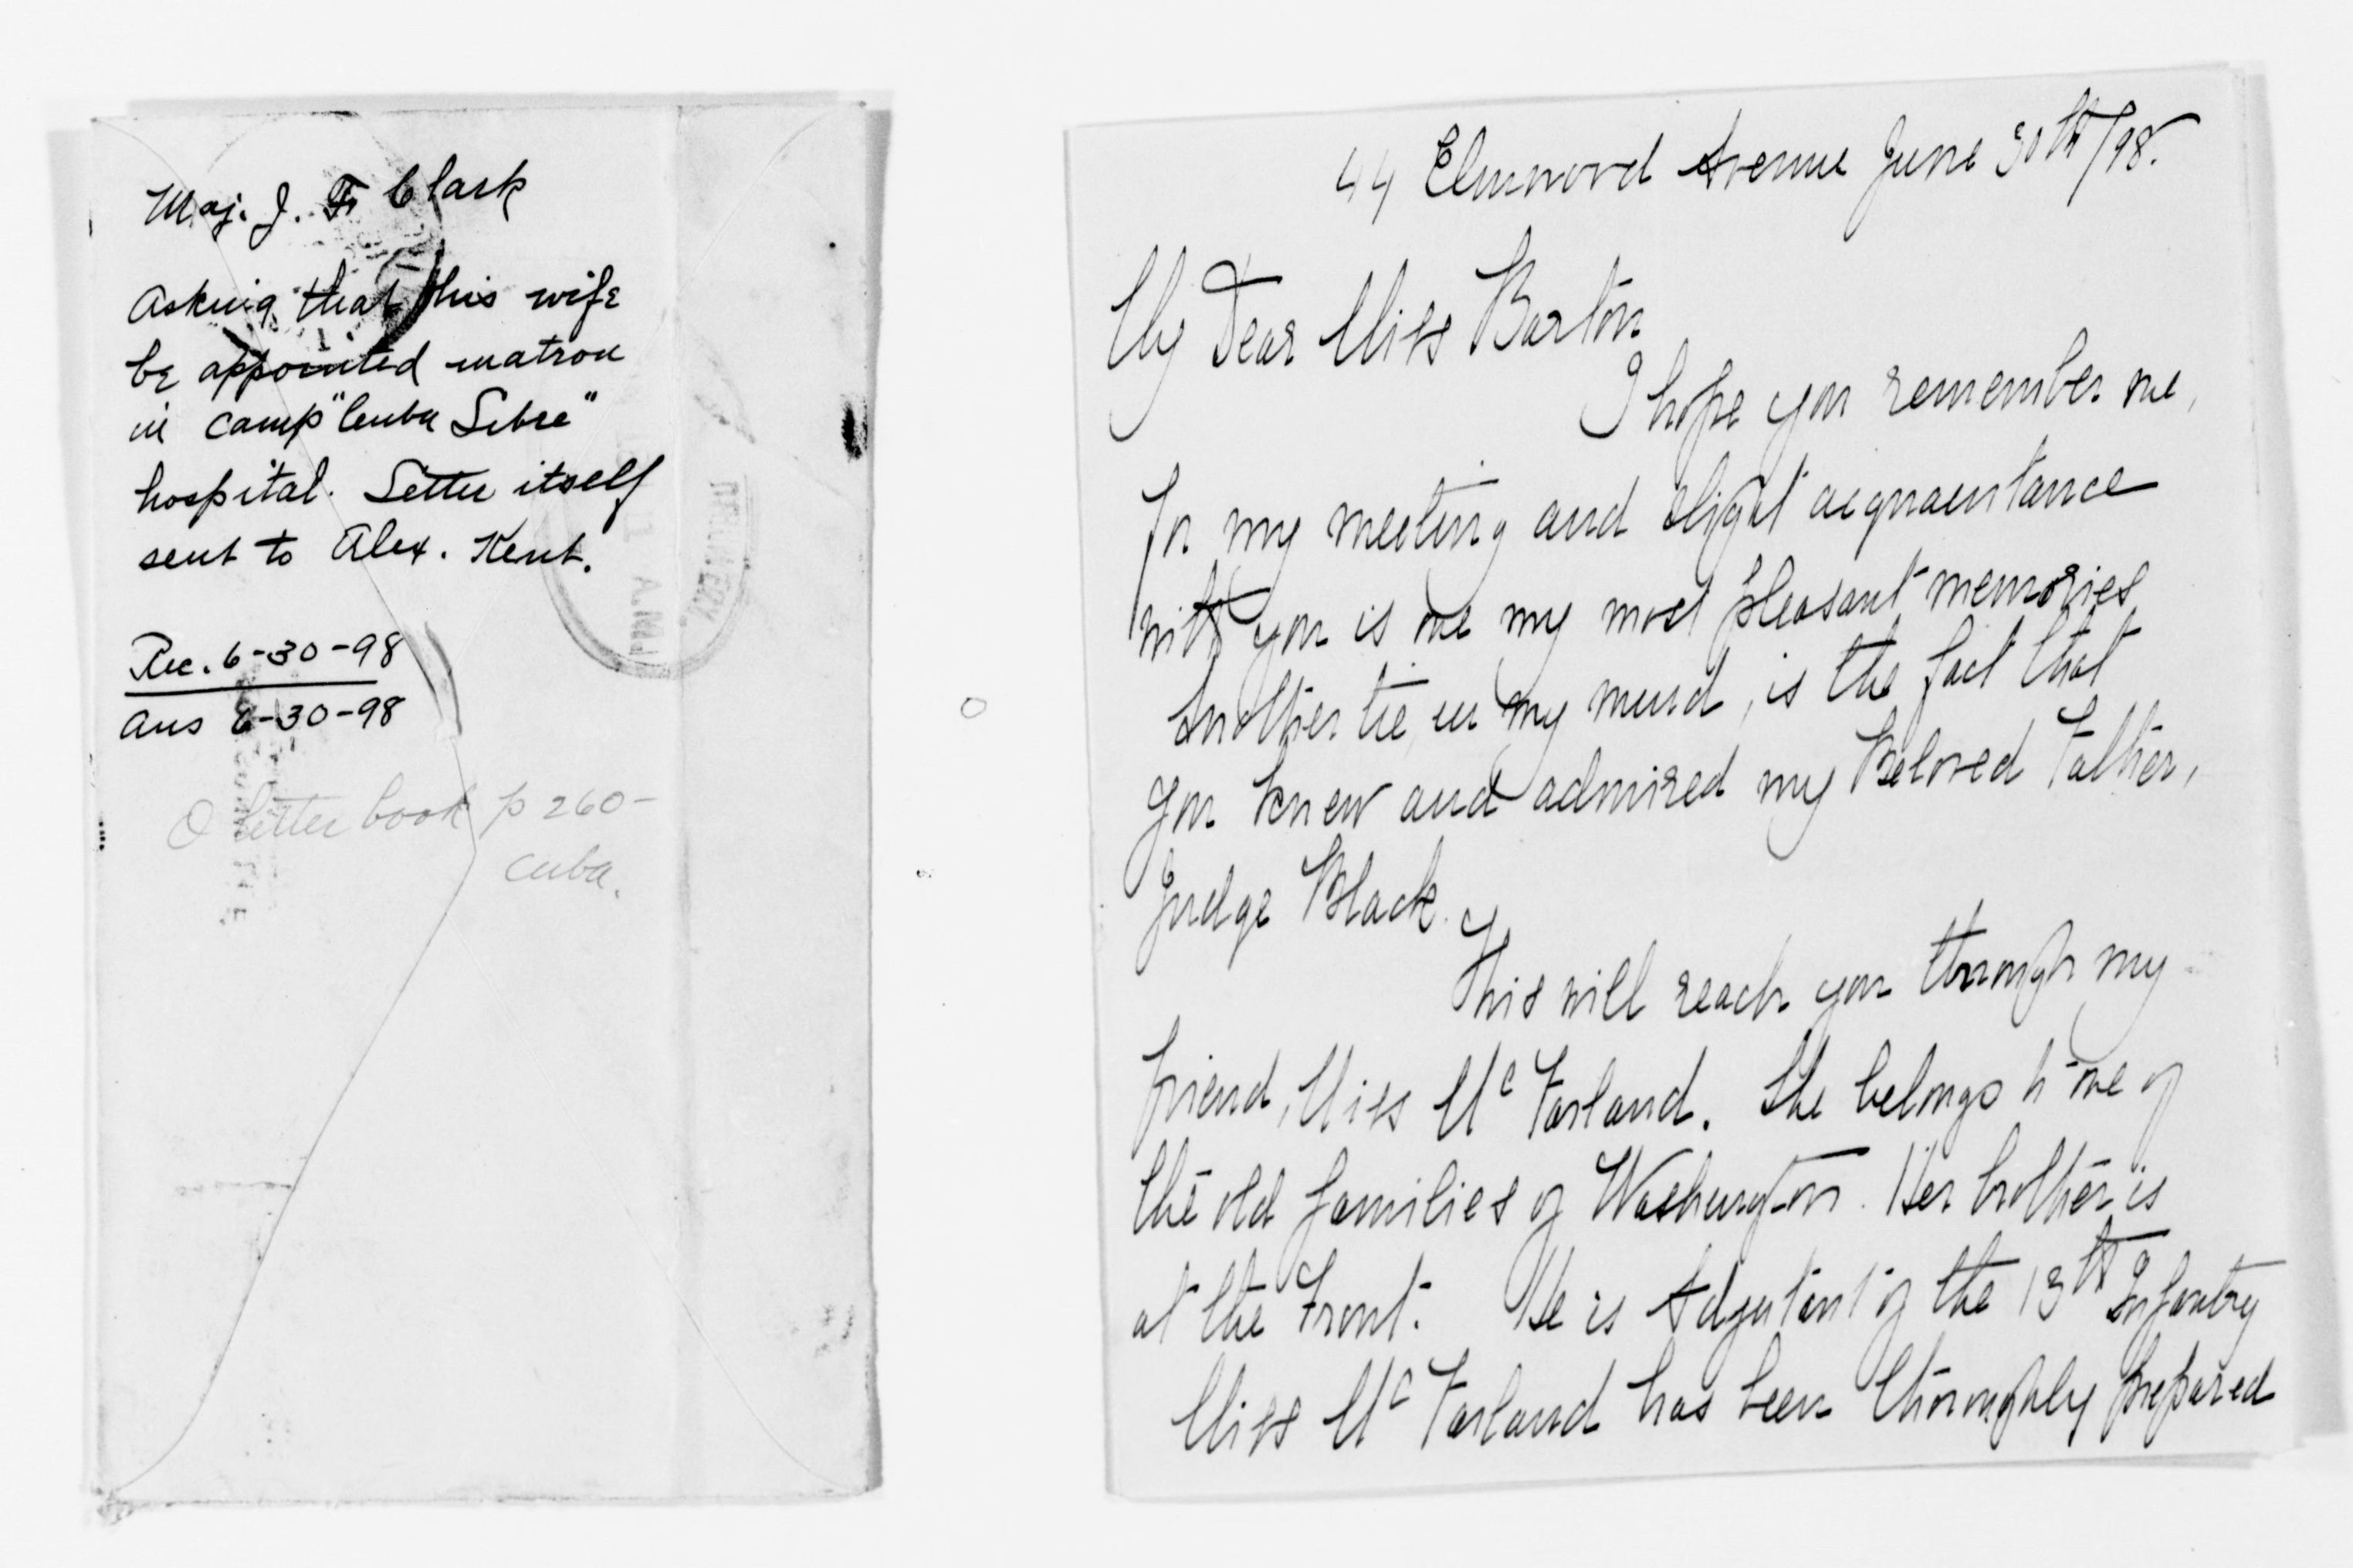 Maj. J. F. Clark
Asking that his wife
be appointed matron
in camp "Cuba Libre"
hospital. Letter itself
sent to Alex. Kent.
Rec. 6-30-98
Ans 6-30-98
letter book p 260-
Cuba.
A.M.
44 Elmwood Avenue June 30th/98.
My Dear Miss Barton
I hope you remember me,
For my meeting and slight acquaintance
with you is one my most pleasant memories
Another tie, in my mind, is the fact that
you knew and admired my Beloved Father,
Judge Black.
This will reach you through my
friend, Miss McFarland. She belongs to one of
the old families of Washington. Her brother is
at the Front. He is Adjutant of the 13th Infantry
Miss McFarland has been thoroughly prepared